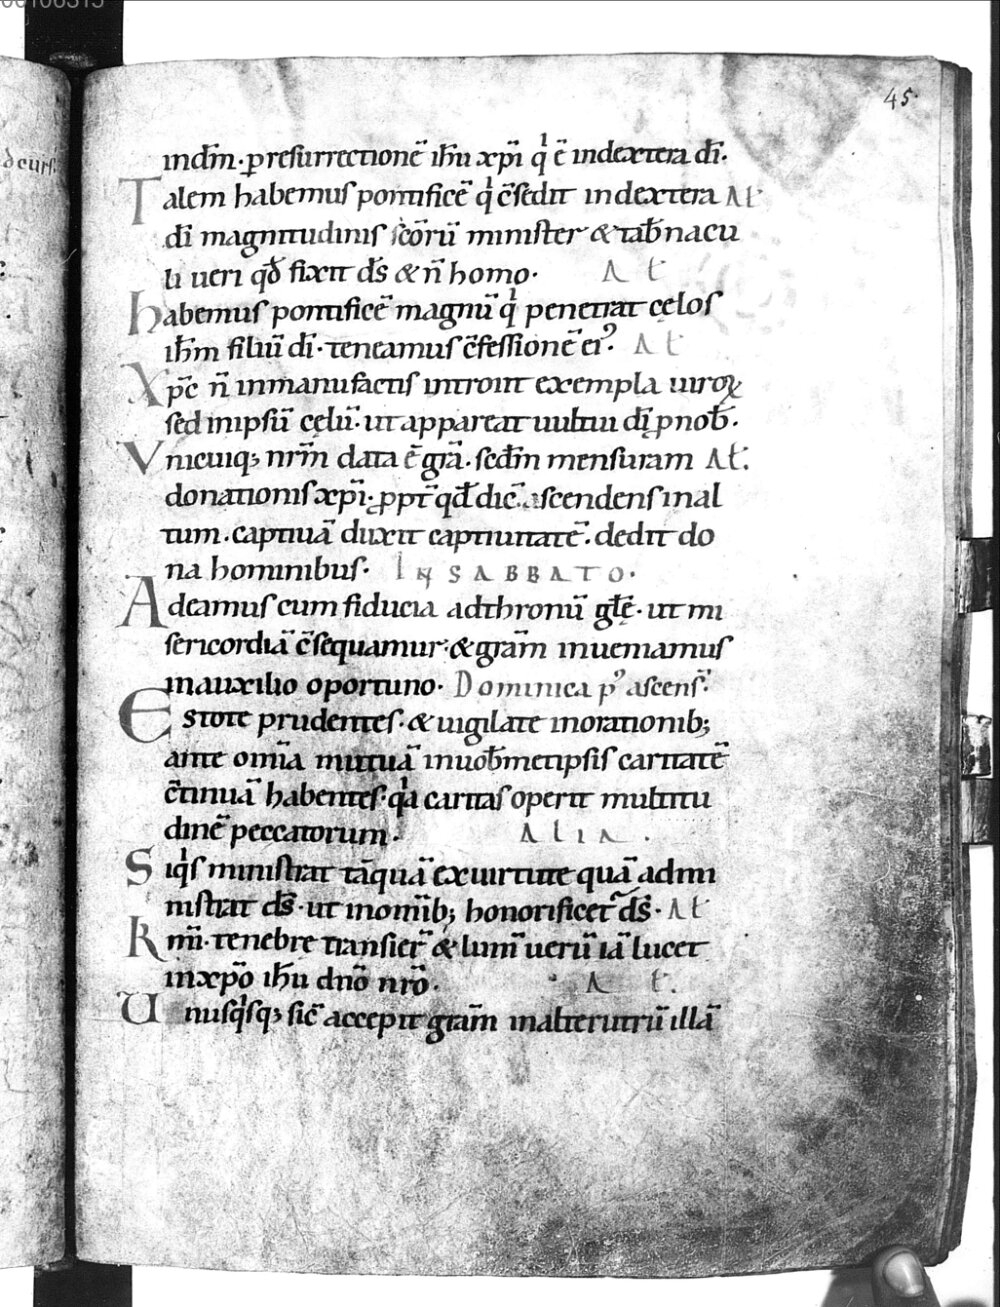 00106315
45.
decurs.
indm̄· ꝑ resurrectionē ih̄u xp̄i qͥ ē indextera dī·
Talem habemus pontificē qͥ c̄sedit indextera Al̄
dī magnitudinis sc̄orū minister & tab̄nacu
li ueri qd̄ fixit d̄s & n̄ homo· Al̄
habemus pontificē magnū qͥ penetrat cęlos
ih̄m filiū dī· teneamus c̄fessionē ei᾿. Al̄
Xp̄c n̄ inmanufactis introiit exempla uiroꝝ
sed inipsū cęlū· ut appareat uultui dī ꝓ nob̄·
Vnicuiq; nr̄m data ē grā· sedm̄ mensuram Al̄.
donationis xp̄i· ꝓpt̄ qd̄ dic̄ ascendens inal
tum· captiuā duxit captiuitatē· dedit do
na hominibus· IN SABBATO·
Adeamus cum fiducia adthronū gl̄ę· ut mi
sericordiā c̄sequamur· & grām inueniamus
inauxilio oportuno· Dominica p᾿ ascens̄·
Estote prudentes· & uigilate inorationib;
ante om̄ia mutuā inuob̄metipsis caritatē
c̄tinuā habentes· qͥa caritas operit multitu
dinē peccatorum· Alia·
Siqͥs ministrat tāquā exuirtute quā admi
nistrat d̄s· ut inom̄ib; honorificet᷑ d̄s· Al̄
Kmī· tenebre transier̄ & lum̄ uerū iā lucet
inxp̄o ih̄u dnō nrō· Al̄.
Unusqͥsq; sic̄ accepit grām inalterutrū illā